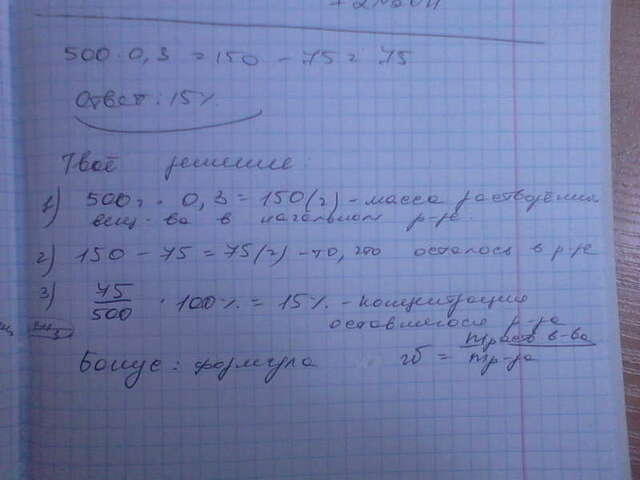 + 2NaOH
500 · 0,3 = 150 - 75 = 75
Ответ: 15%.
Твоё решение:
1) 500г · 0,3 = 150(г) - масса растворённ.
вещ-ва в начальном р-ре.
2) 150 - 75 = 75(г) - то, что осталось в р-ре
3) 75/500 · 100% = 15% - концентрация
оставшегося р-ра
Бонус: формула ω = mраств в-ва / mр-ра